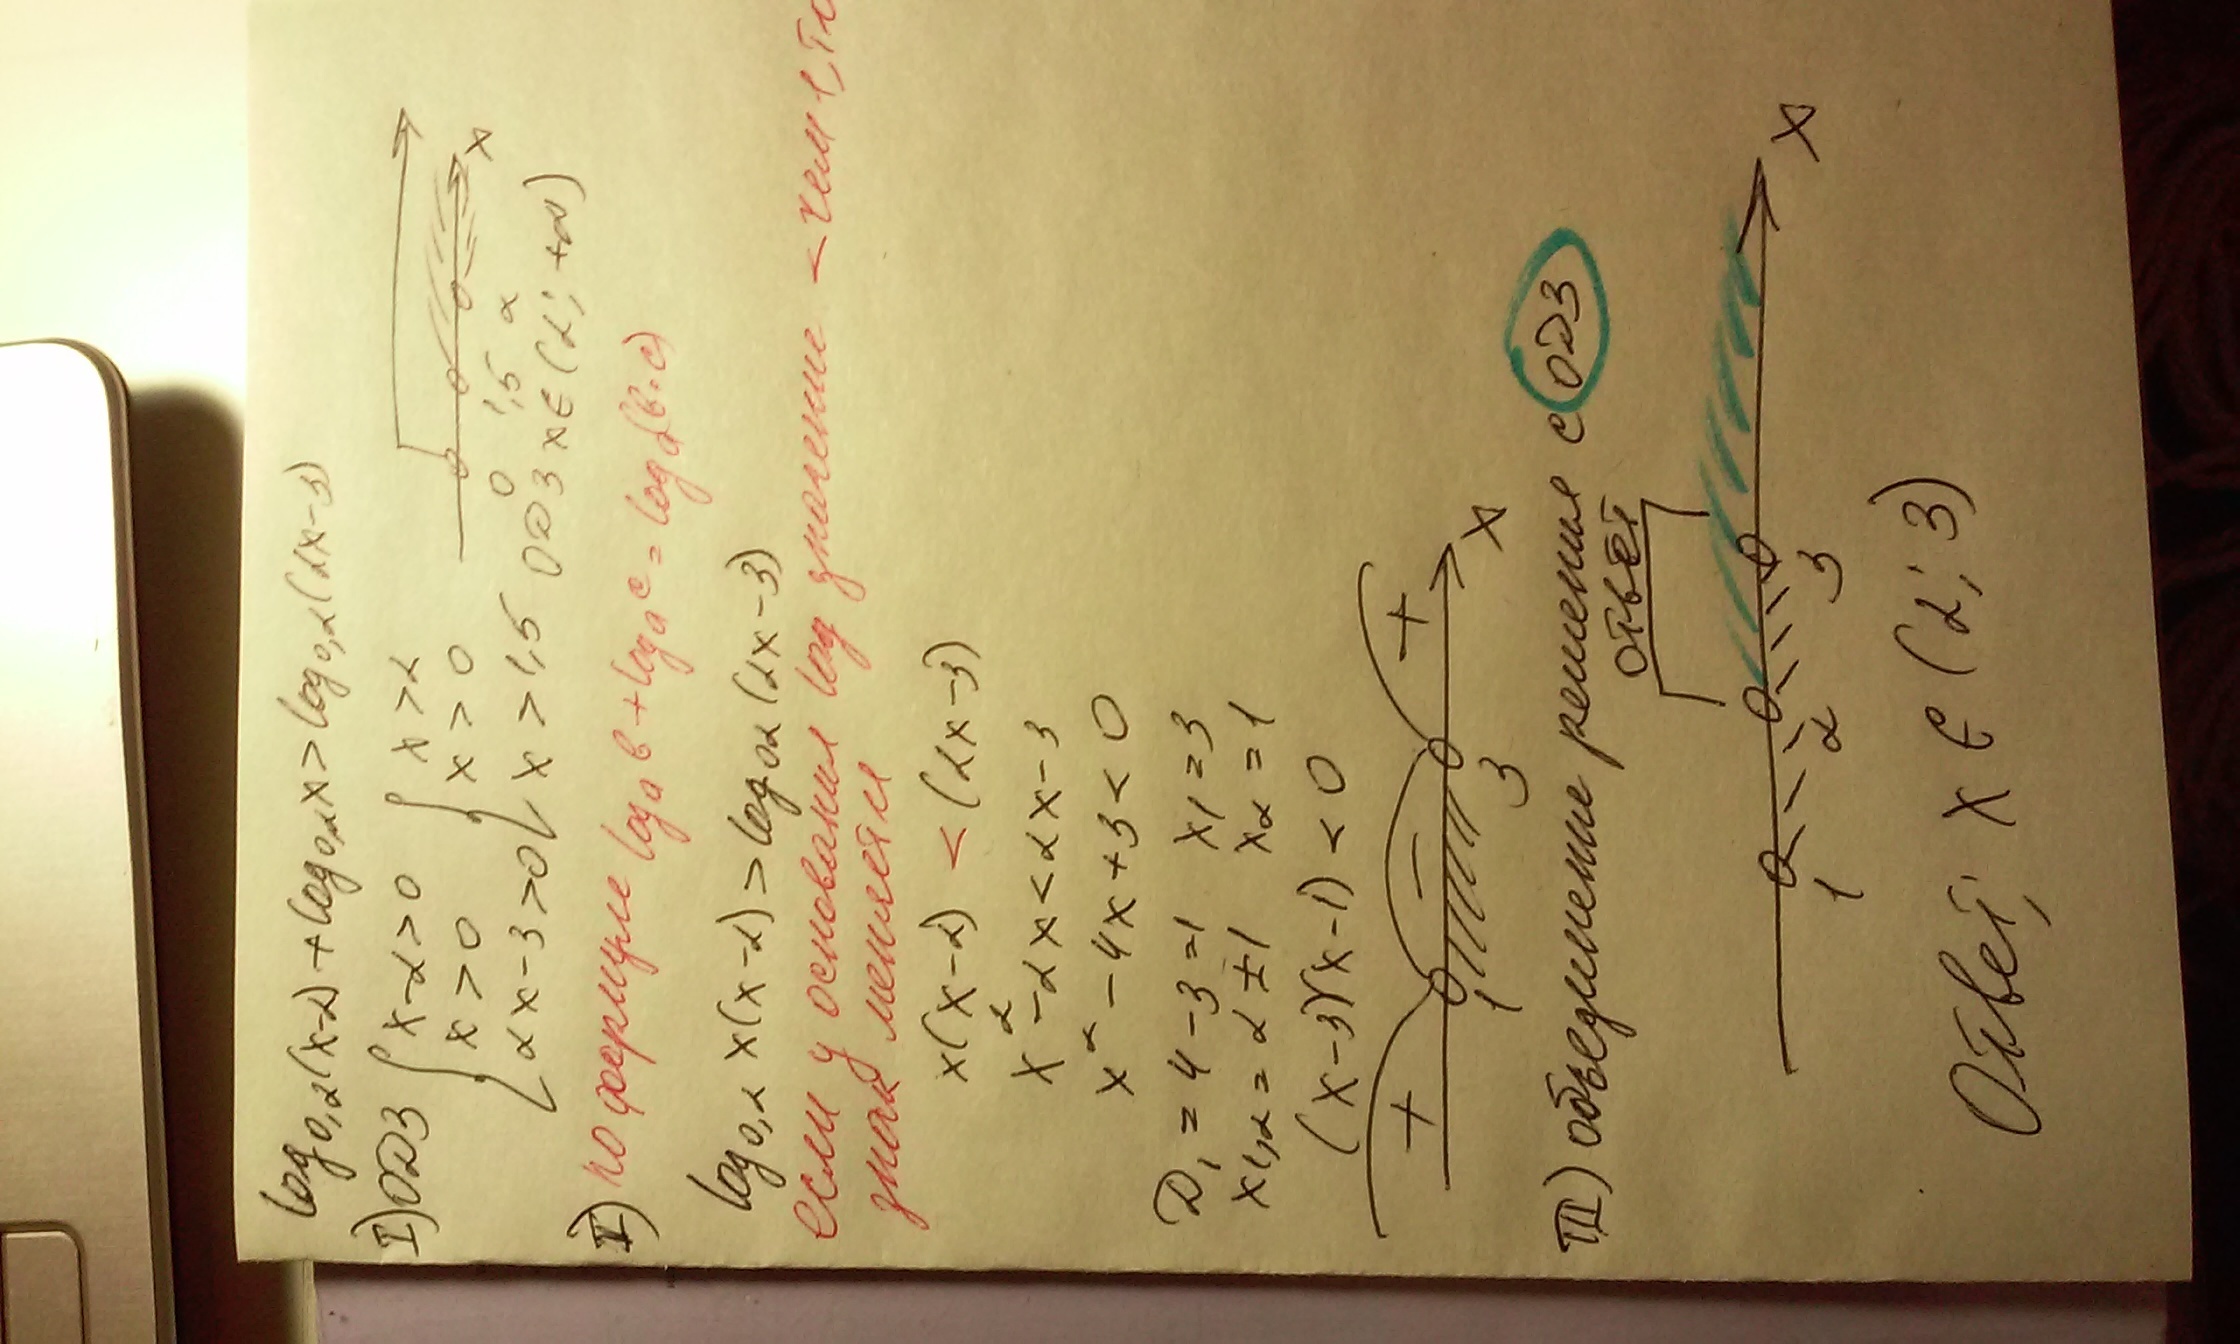 log₀,₂(x-2)+log₀,₂x>log₀,₂(2x-3)
I) ОДЗ { x-2>0 { x>2
x>0 x>0
2x-3>0 x>1,5
0 1,5 2 x
ОДЗ x∈(2; +∞)
II) по формуле logₐb+logₐc=logₐ(b·c)
log₀,₂ x(x-2)>log₀,₂(2x-3)
если у основания log значение < чем 1, то
знак меняется
x(x-2) < (2x-3)
x²-2x<2x-3
x²-4x+3<0
D₁=4-3=1 x₁=3
x₁,₂=2±1 x₂=1
(x-3)(x-1)<0
+ - +
1 3 x
III) объединение решения с ОДЗ
ответ
1 2 3 x
Ответ; x∈(2; 3)